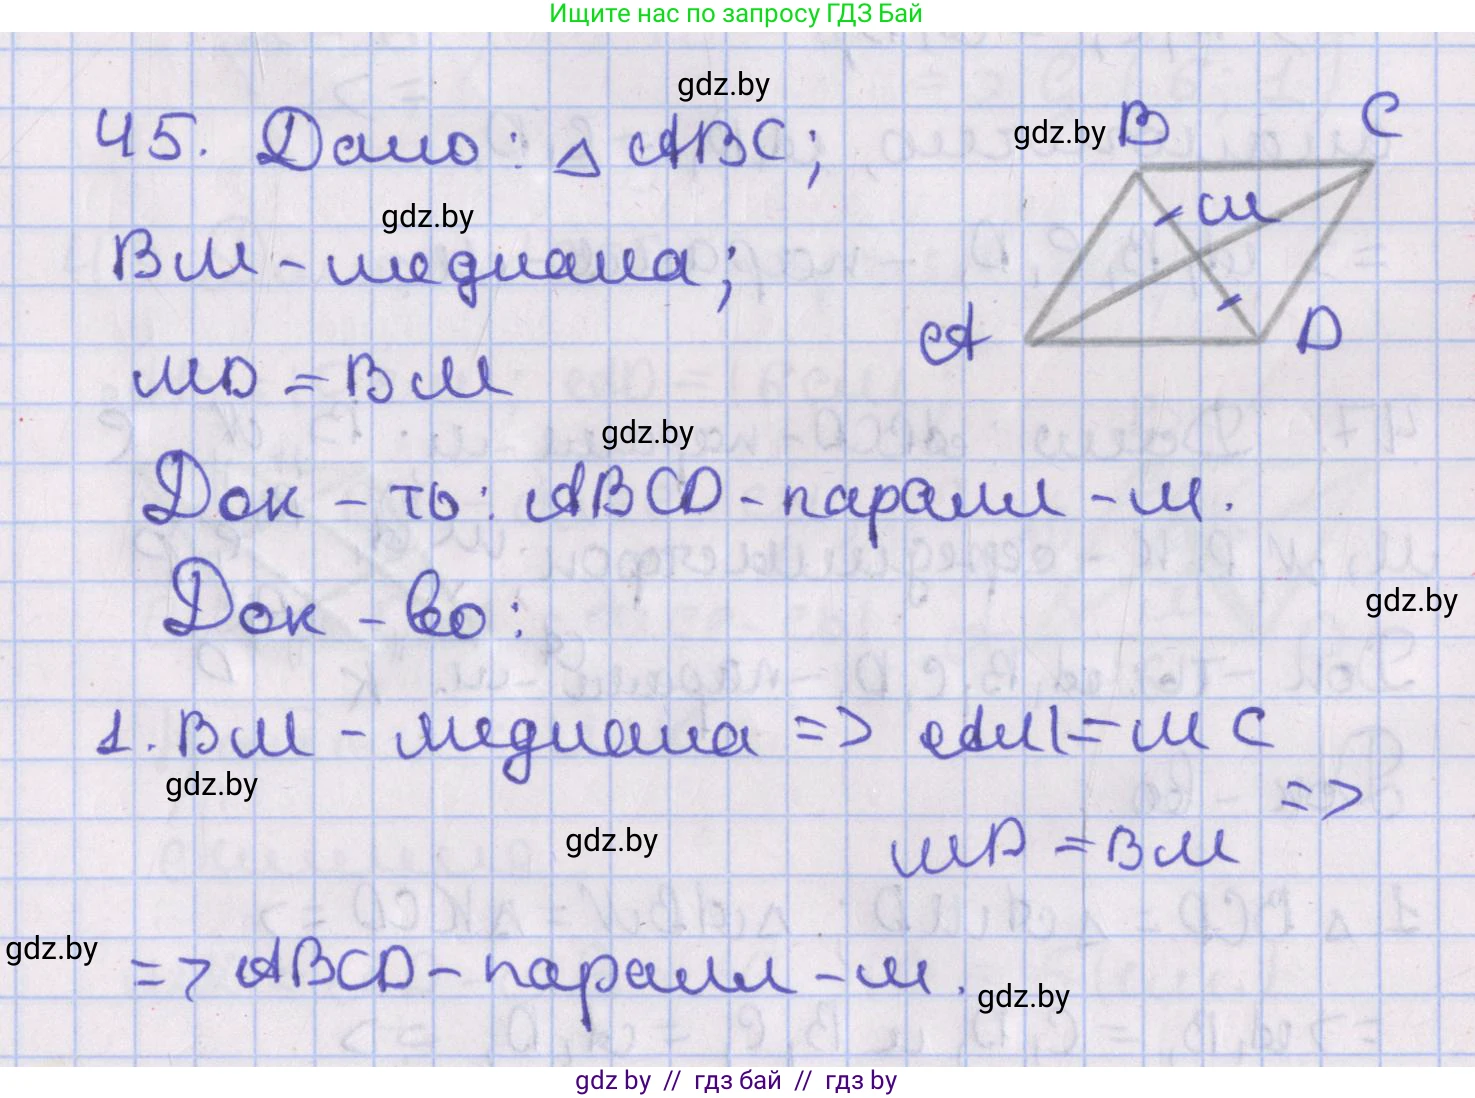 Ищите нас по запросу ГДЗ Бай
gdz.by
45. Дано: △ ABC;
gdz.by
B
C
gdz.by
BM - медиана;
M
MD = BM
A
D
gdz.by
Док - ть: ABCD - паралл - м.
Док - во:
gdz.by
1. BM - медиана => AM = MC
gdz.by
=>
gdz.by
MD = BM
gdz.by
=> ABCD - паралл - м.
gdz.by
gdz by // гдз бай // гдз by